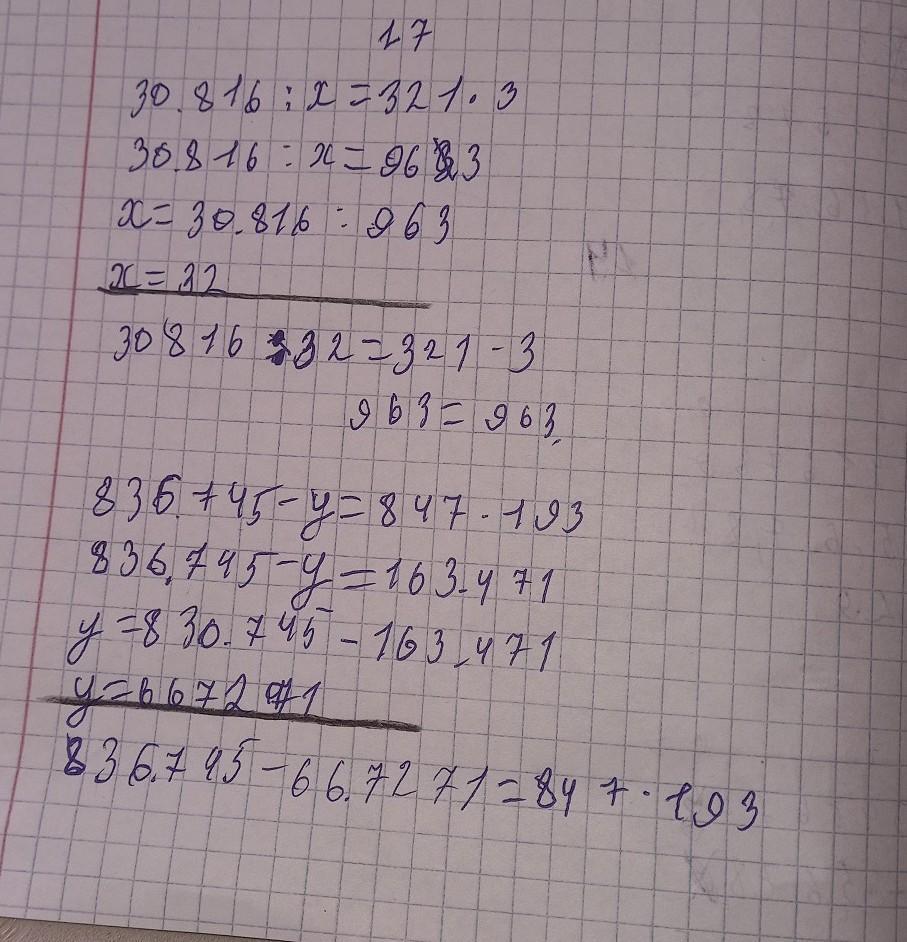 17
30.816 : x = 321 . 3
30.816 : x = 963
x = 30.816 : 963
x = 32
30816 : 32 = 321 - 3
963 = 963.
836.745 - y = 847 . 193
836.745 - y = 163.471
y = 830.745 - 163.471
y = 667271
836.745 - 66.7271 = 847 . 193